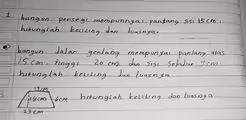 1 bangun persegi mempunyai panjang sisi 15 cm,
hitunglah keliling dan luasnya.
bangun jajar genjang mempunyai panjang alas
15 cm. tinggi 20 cm dan sisi sebelar cm
hitunglah keliling dan luasnya
cm
18cm 6cm hitunglah keliling dan luasnya
23 cm